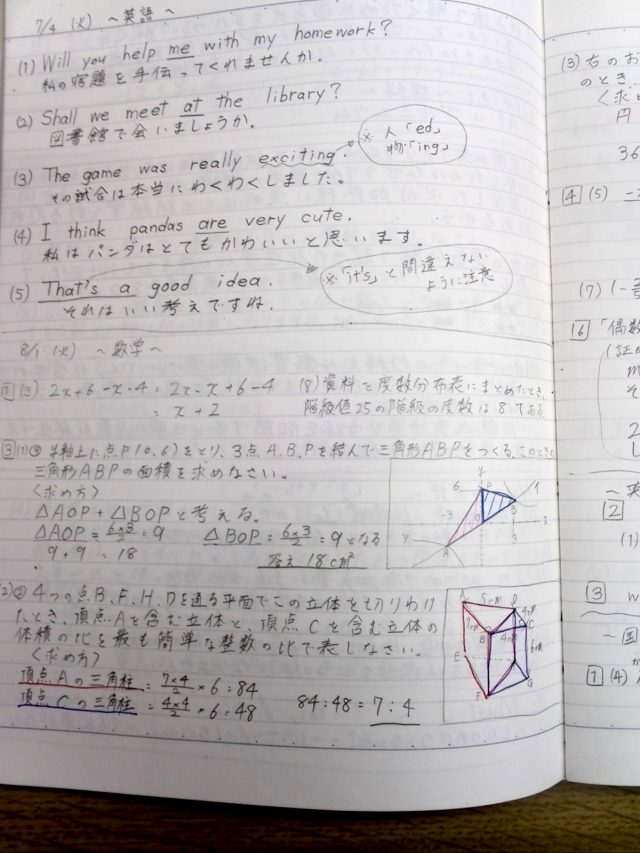 7/4 (火) ～英語～
(1) Will you help me with my homework?
私の宿題を手伝ってくれませんか。
(2) Shall we meet at the library?
図書館で会いましょうか。
※ 人「ed」
物「ing」
(3) The game was really exciting.
その試合は本当にわくわくしました。
(4) I think pandas are very cute.
私はパンダはとてもかわいいと思います。
(5) That's a good idea.
それはいい考えですね。
※「it's」と間違えない
ように注意
8/1 (火) ～数学～
1 (3) 2x+6-x-4 = 2x-x+6-4
= x+2
(8) 資料を度数分布表にまとめたとき、
階級値25の階級の度数は8である
3 (1) ③ y軸上に点P(0,6)をとり、3点A、B、Pを結んで三角形ABPをつくる。このときの
三角形ABPの面積を求めなさい。
〈求め方〉
△AOP+△BOPと考える。
△AOP = 6×3/2 = 9 △BOP = 6×3/2 = 9となる
9+9=18
答え 18cm²
6 P
-3
3
A
(2) ② 4つの点B、F、H、Dを通る平面でこの立体を切りわけ
たとき、頂点Aを含む立体と、頂点Cを含む立体の
体積の比を最も簡単な整数の比で表しなさい。
〈求め方〉
頂点Aの三角柱 = 7×4/2 × 6 = 84
頂点Cの三角柱 = 4×4/2 × 6 = 48
84:48 = 7:4
A 5cm D
4cm
7cm B 4cm C
6cm
E
F G
(3) 右のお
のとき、
〈求
円
36
4 (5)
(7)
6 「偶数
(証
m
そ
2
し
2
(1)
3 w
～国
1 (4)